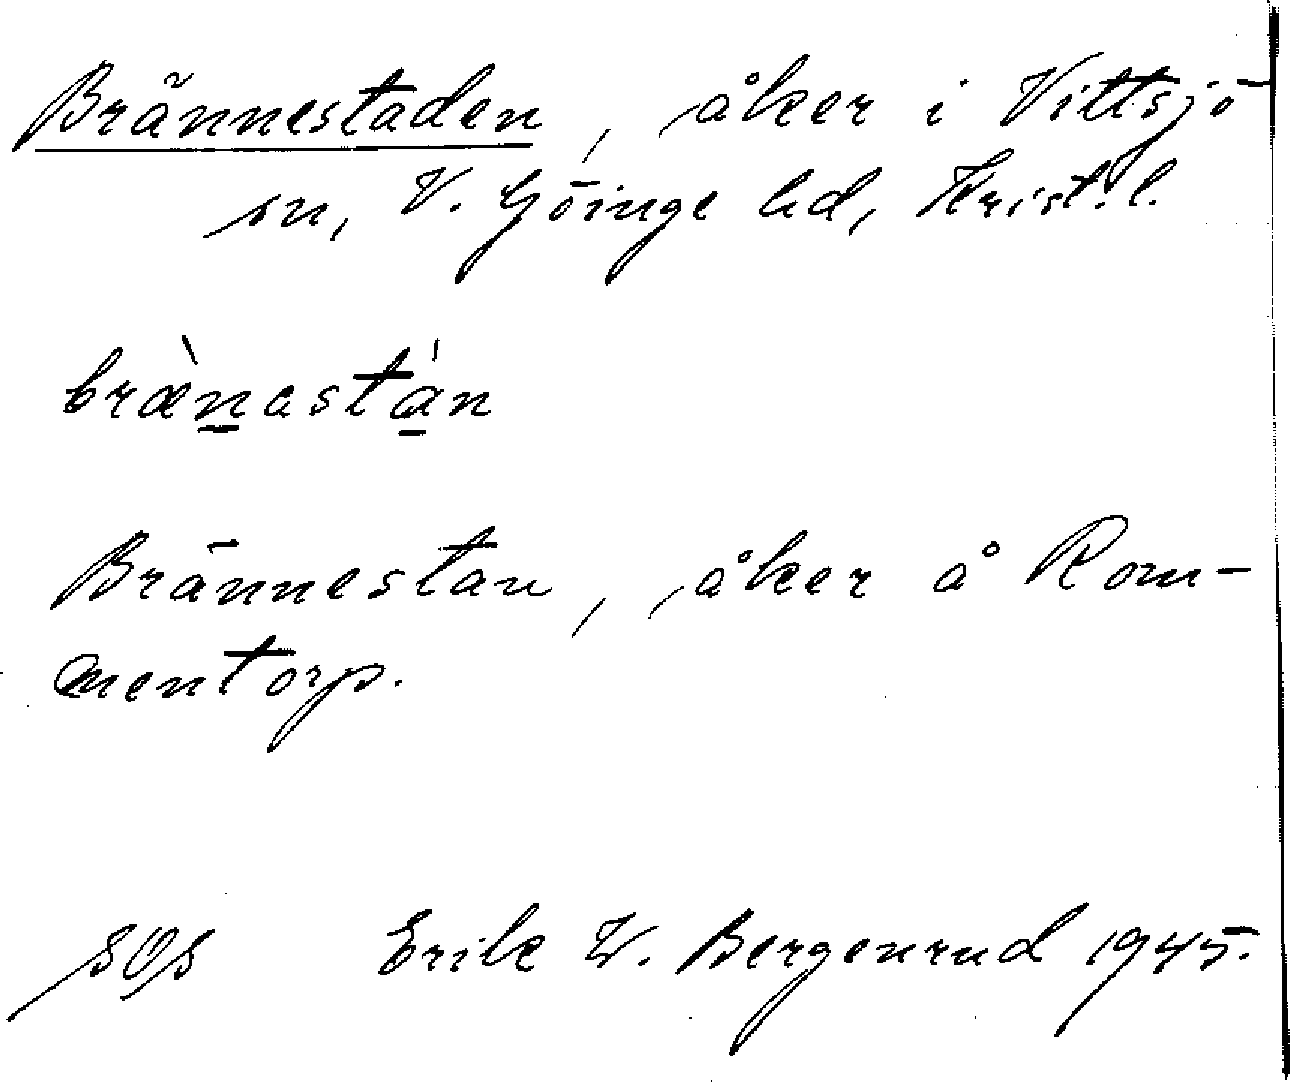 Brännestaden, åker i Vittsjö
sn, V. Göinge hd, Krist. l.
bræ̀nastán
Brännestan, åker å Rom-
mentorp.
Erik W. Bergenrud 1945.